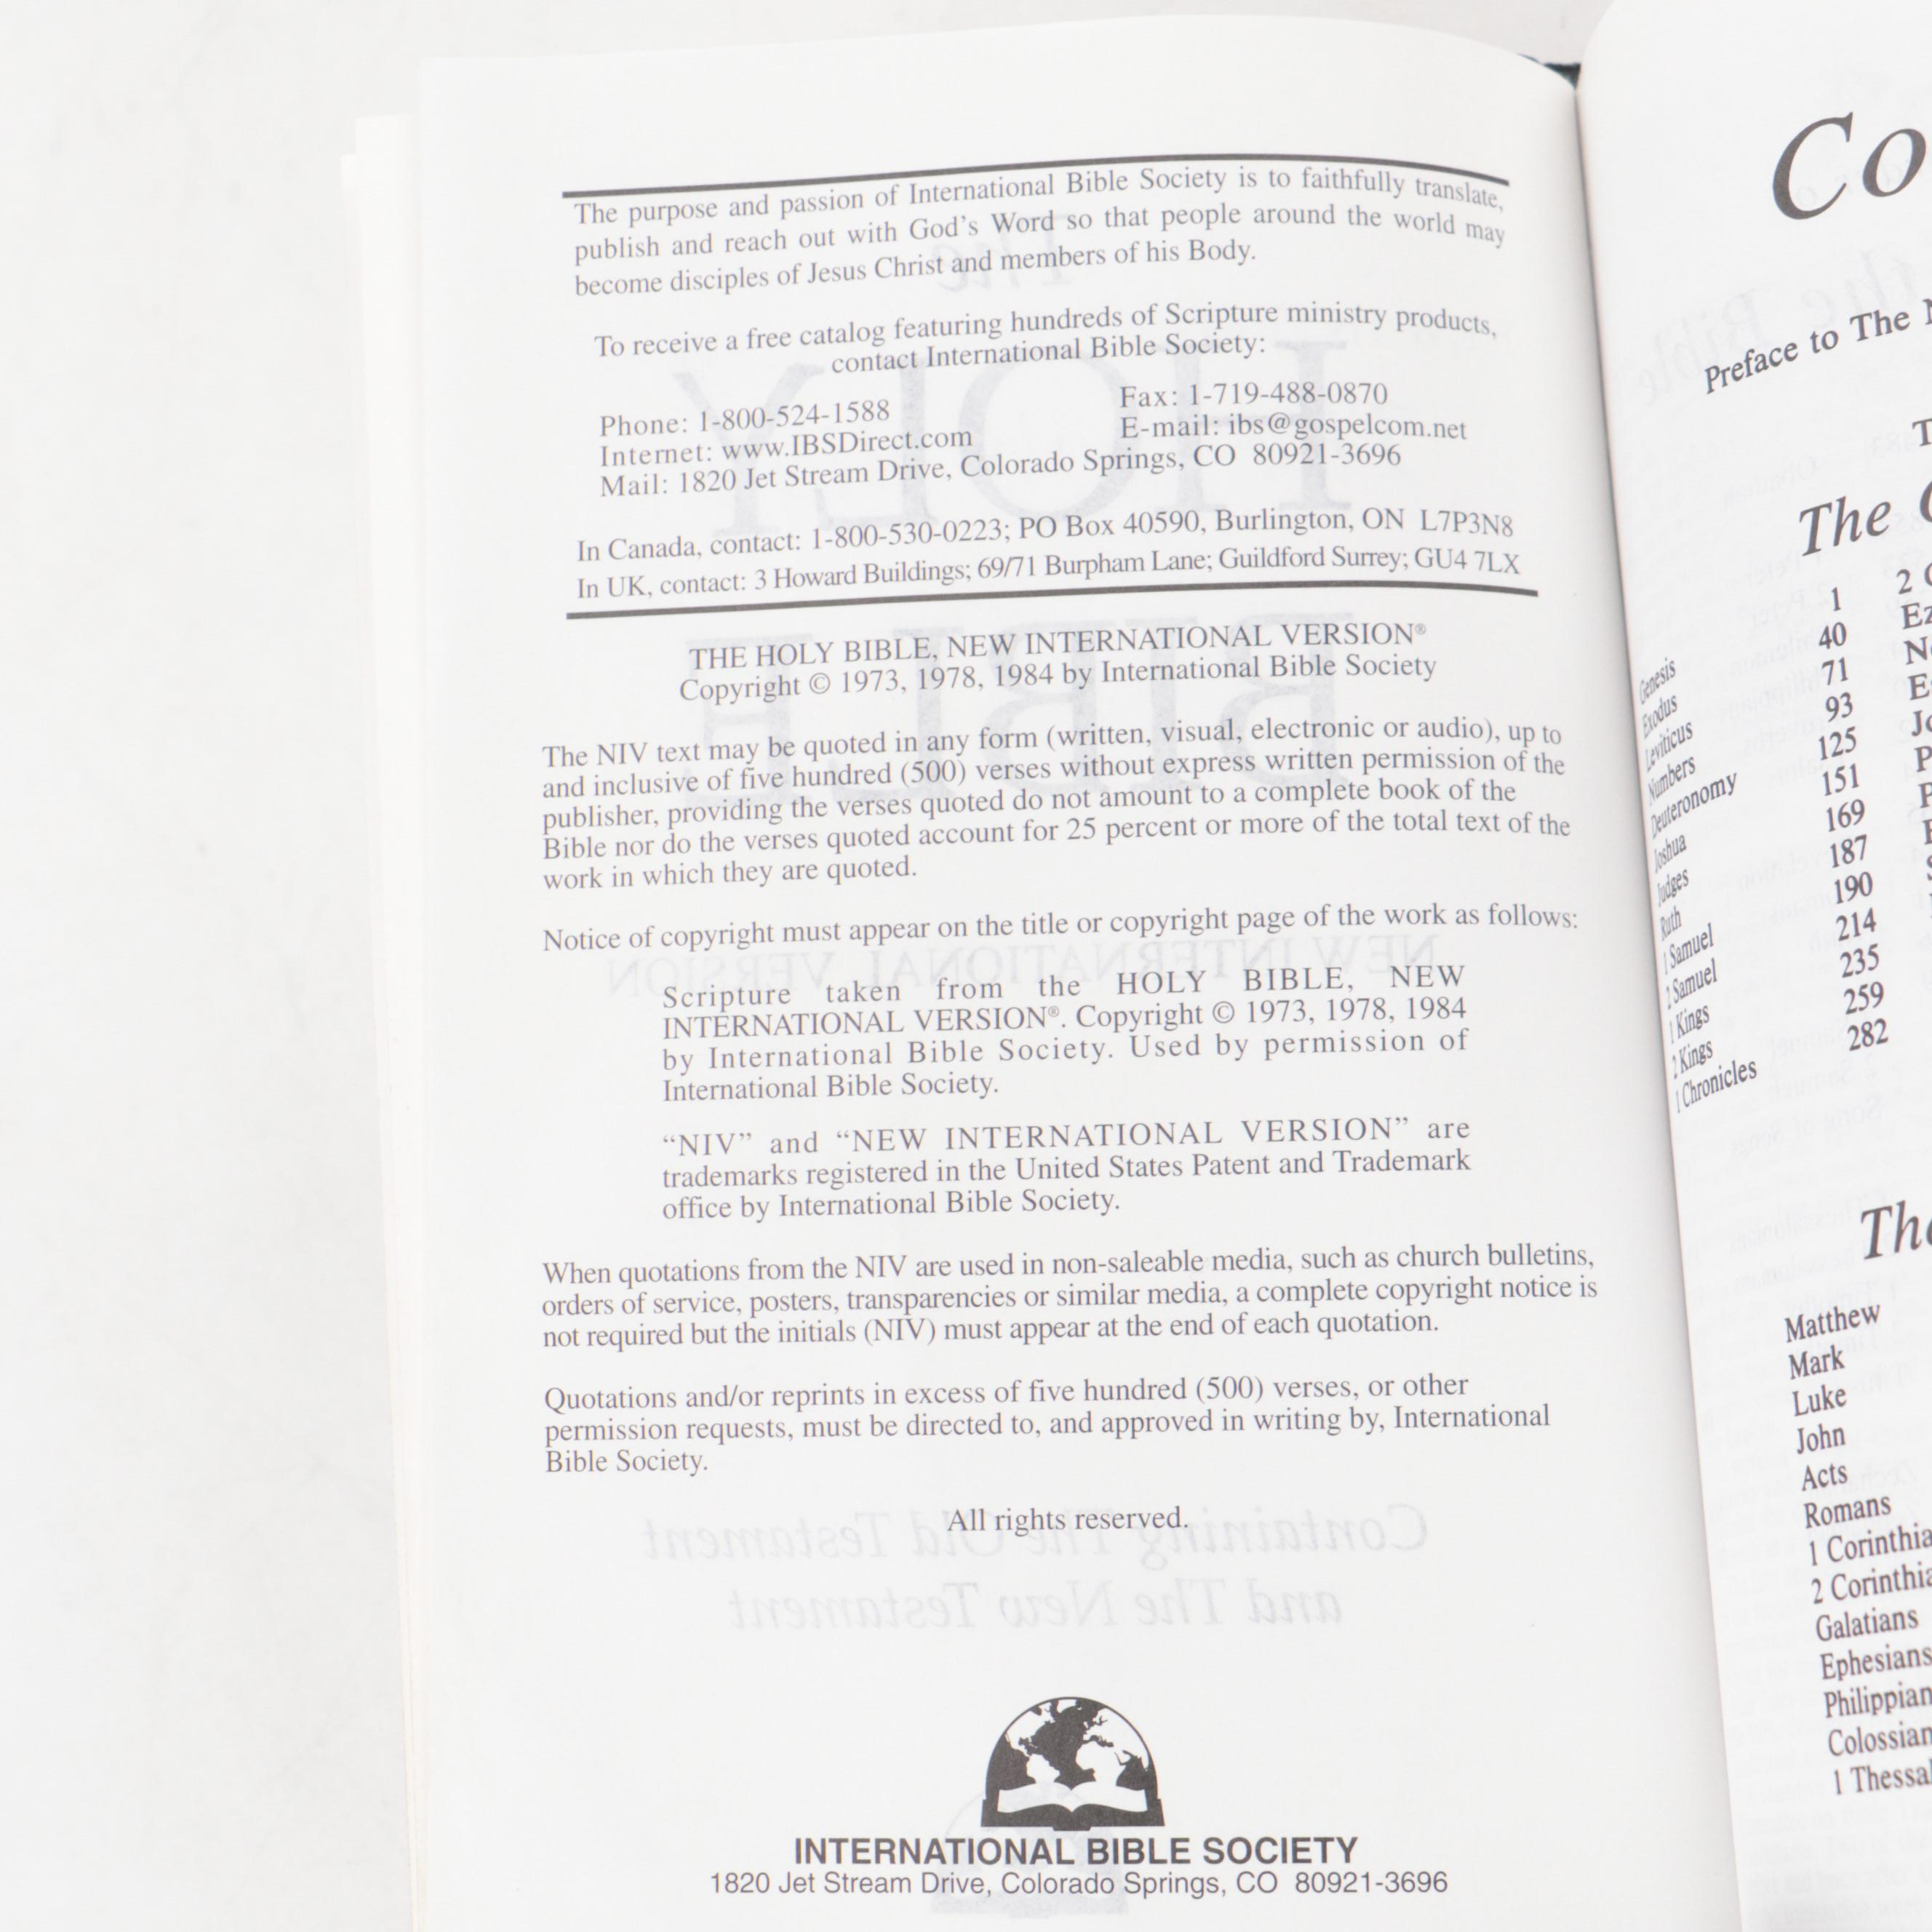 The purpose and passion of International Bible Society is to faithfully translate,
publish and reach out with God's Word so that people around the world may
become disciples of Jesus Christ and members of his Body.
To receive a free catalog featuring hundreds of Scripture ministry products,
contact International Bible Society:
Phone: 1-800-524-1588
Fax: 1-719-488-0870
Internet: www.IBSDirect.com
E-mail: ibs@gospelcom.net
Mail: 1820 Jet Stream Drive, Colorado Springs, CO 80921-3696
In Canada, contact: 1-800-530-0223; PO Box 40590, Burlington, ON L7P3N8
In UK, contact: 3 Howard Buildings; 69/71 Burpham Lane; Guildford Surrey; GU4 7LX
THE HOLY BIBLE, NEW INTERNATIONAL VERSION®
Copyright © 1973, 1978, 1984 by International Bible Society
The NIV text may be quoted in any form (written, visual, electronic or audio), up to
and inclusive of five hundred (500) verses without express written permission of the
publisher, providing the verses quoted do not amount to a complete book of the
Bible nor do the verses quoted account for 25 percent or more of the total text of the
work in which they are quoted.
Notice of copyright must appear on the title or copyright page of the work as follows:
Scripture taken from the HOLY BIBLE, NEW
INTERNATIONAL VERSION®. Copyright © 1973, 1978, 1984
by International Bible Society. Used by permission of
International Bible Society.
“NIV” and “NEW INTERNATIONAL VERSION” are
trademarks registered in the United States Patent and Trademark
office by International Bible Society.
When quotations from the NIV are used in non-saleable media, such as church bulletins,
orders of service, posters, transparencies or similar media, a complete copyright notice is
not required but the initials (NIV) must appear at the end of each quotation.
Quotations and/or reprints in excess of five hundred (500) verses, or other
permission requests, must be directed to, and approved in writing by, International
Bible Society.
All rights reserved.
INTERNATIONAL BIBLE SOCIETY
1820 Jet Stream Drive, Colorado Springs, CO 80921-3696
Co
Preface to The
The
Genesis 1
Exodus 40
Leviticus 71
Numbers 93
Deuteronomy 125
Joshua 151
Judges 169
Ruth 187
1 Samuel 190
2 Samuel 214
1 Kings 235
2 Kings 259
1 Chronicles 282
2
Ez
The
Matthew
Mark
Luke
John
Acts
Romans
1 Corinthia
2 Corinthia
Galatians
Ephesians
Philippian
Colossian
1 Thessal